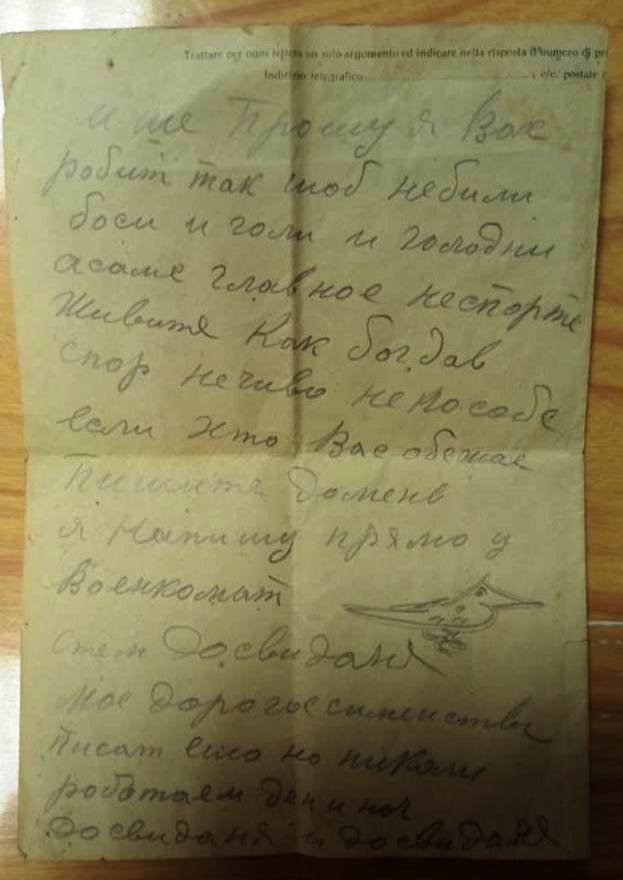 Trattare per ogni lettera un solo argomento ed indicare nella risposta il numero di pr
Indirizzo telegrafico , c/c. postale
и ше Прошу я Вас
робит так шоб небили
боси и голи и голодни
асаме главное неспорте
Живите Как бог дав
спор нечиво непособе
если хто Вас обежае
Пишите домене
я напишу прямо у
Военкомат
стем Досвиданя
мое дорогое сименство
писат ешо но николи
роботаем ден и ноч
Досвиданя и досвиданя